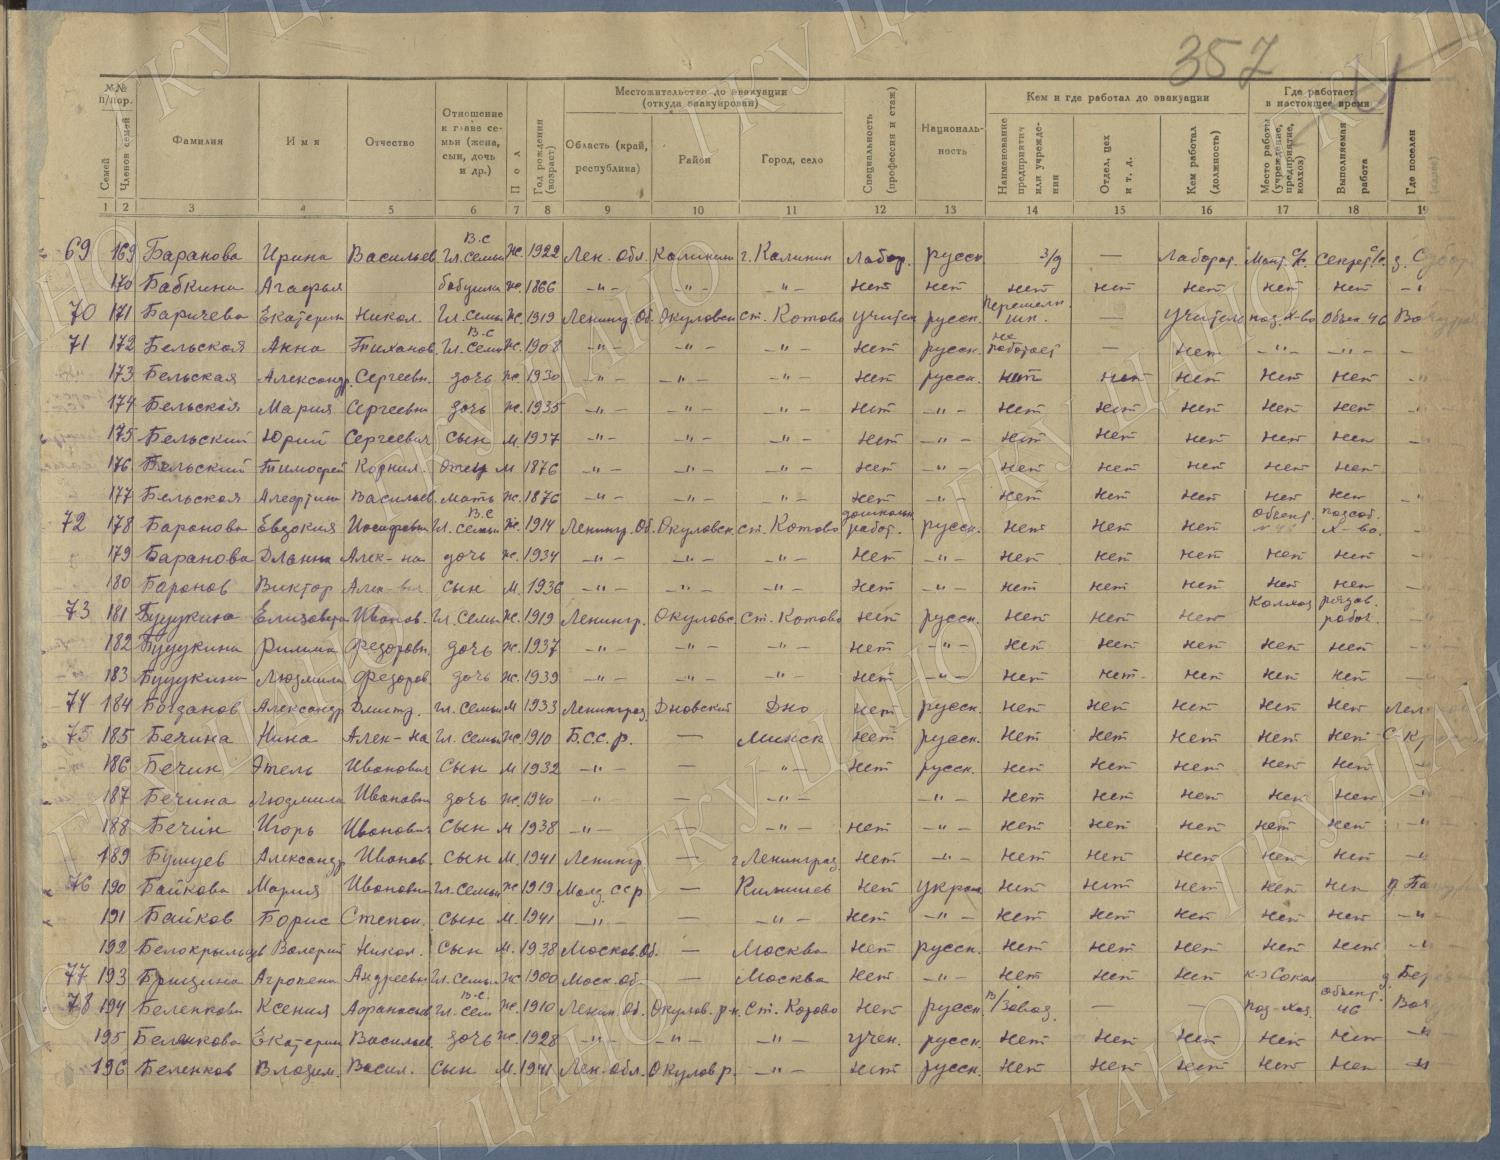 357
№№ п/пор.
Семей
Членов семей
Фамилия
Имя
Отчество
Отношение к главе семьи (жена, сын, дочь и др.)
Пол
Год рождения (возраст)
Местожительство до эвакуации (откуда эвакуирован)
Область (край, республика)
Район
Город, село
Специальность (профессия и стаж)
Националь- ность
Кем и где работал до эвакуации
Наименование предприятия или учрежде- ния
Отдел, цех и т. д.
Кем работал (должность)
Где работает в настоящее время
Место работы (учреждение, предприятие, колхоз)
Выполняемая работа
Где поселен
1 2 3 4 5 6 7 8 9 10 11 12 13 14 15 16 17 18 19
69 169 Баранова Ирина Васильев. Гл. семьи В.С ж. 1922 Лен. Обл. Калинин г. Калинин Лабор. русск — Лаборат.
170 Бабкина Агафья бабушка ж. 1866 -"- -"- -"- нет нет нет нет нет нет нет -"
70 171 Баричева Екатерин Никол. Гл. семьи ж. 1919 Ленинг. Об. Окуловск ст. Котово учител русск. — Учитель под. х-во Объек 46
71 172 Бельская Анна Тиханов. Гл. семьи В.С ж. 1908 -"- -"- -"- нет русск. не работает — нет -"- -"- -
173 Бельская Александр. Сергеевн. дочь ж. 1930 -"- -"- -"- нет русск. нет нет нет нет нет -"
174 Бельская Мария Сергеевн дочь ж. 1935 -"- -"- -"- нет -"- нет нет нет нет нет
175 Бельский Юрий Сергеевич сын м. 1937 -"- -"- -"- нет -"- нет нет нет нет нет
176 Бельский Тимофей Корнил. Отец м 1876 -"- -"- -"- нет -"- нет нет нет нет нет
177 Бельская Алефтина Васильев. мать ж. 1876 -"- -"- -"- нет -"- нет нет нет нет нет -"
72 178 Баранова Евдокия Иосифовн Гл. семьи В.С ж. 1914 Ленингр. Об. Окуловск. ст. Котово дошкольн работ. русск. нет нет нет Объект. № 46 подсоб. х-во.
179 Баранова Диана Алек-на дочь ж. 1934 -"- -"- -"- нет -"- нет нет нет нет нет
180 Баранов Виктор Алек-вич сын м. 1936 -"- -"- -"- нет -"- нет нет нет нет нет
73 181 Бушукина Елизавера Иванов. Гл. семьи ж. 1919 Ленингр. Окуловс. Ст. Котово нет русск. нет нет нет Колхоз рядов. работ.
182 Бушукина Римма Федоровн. дочь ж. 1937 -"- -"- -"- нет -"- нет нет нет нет нет
183 Бушукина Людмила Федоров дочь ж. 1939 -"- -"- -"- нет -"- нет нет нет нет нет
74 184 Богданов Александр Дмитр. Гл. семьи м 1933 Ленинград. Дновский Дно нет русск. нет нет нет нет нет
75 185 Бечина Нина Алек-на Гл. семьи ж. 1910 Б.С.С.р. — Минск нет русск. нет нет нет нет нет
186 Бечин Этель Иванович сын м 1932 -"- — -"- нет русск. нет нет нет нет нет
187 Бечина Людмила Ивановн дочь ж. 1940 -"- — -"- -"- нет нет нет нет нет -"
188 Бечин Игорь Иванович сын м 1938 -"- — -"- нет -"- нет нет нет нет нет -"
189 Бушуев Александр Иванов. сын м. 1941 Ленингр. — г Ленинград. нет -"- нет нет нет нет нет -"
76 190 Байкова Мария Ивановн Гл. семьи ж 1919 Молд. ССР — Кишинев нет украин нет нет нет нет нет
191 Байков Борис Степан. сын м. 1941 -"- — -"- нет -"- нет нет нет нет нет -"-
192 Белокрыльцев Валерий Никол. сын м. 1938 Москов. Об. — Москва нет русск. нет нет нет нет нет -"
77 193 Брицина Агропена Андреевн Гл. семьи ж 1900 Моск. Об. — Москва нет -"- нет нет нет к-з Сокол
78 194 Беленкова Ксения Афанасьев Гл. сем В.С. ж. 1910 Ленин. Об. Окулов. р-н. Ст. Котово нет русск — — под-хоз. Объект. 46
195 Беленкова Екатерин Васильев. дочь ж. 1928 -"- -"- -"- учен. русск. нет нет нет нет нет -"
196 Беленков Владим. Васил. сын м. 1941 Лен. обл. Окулов р. -"- нет русск. нет нет нет нет нет -"
ГКУ ЦАНО